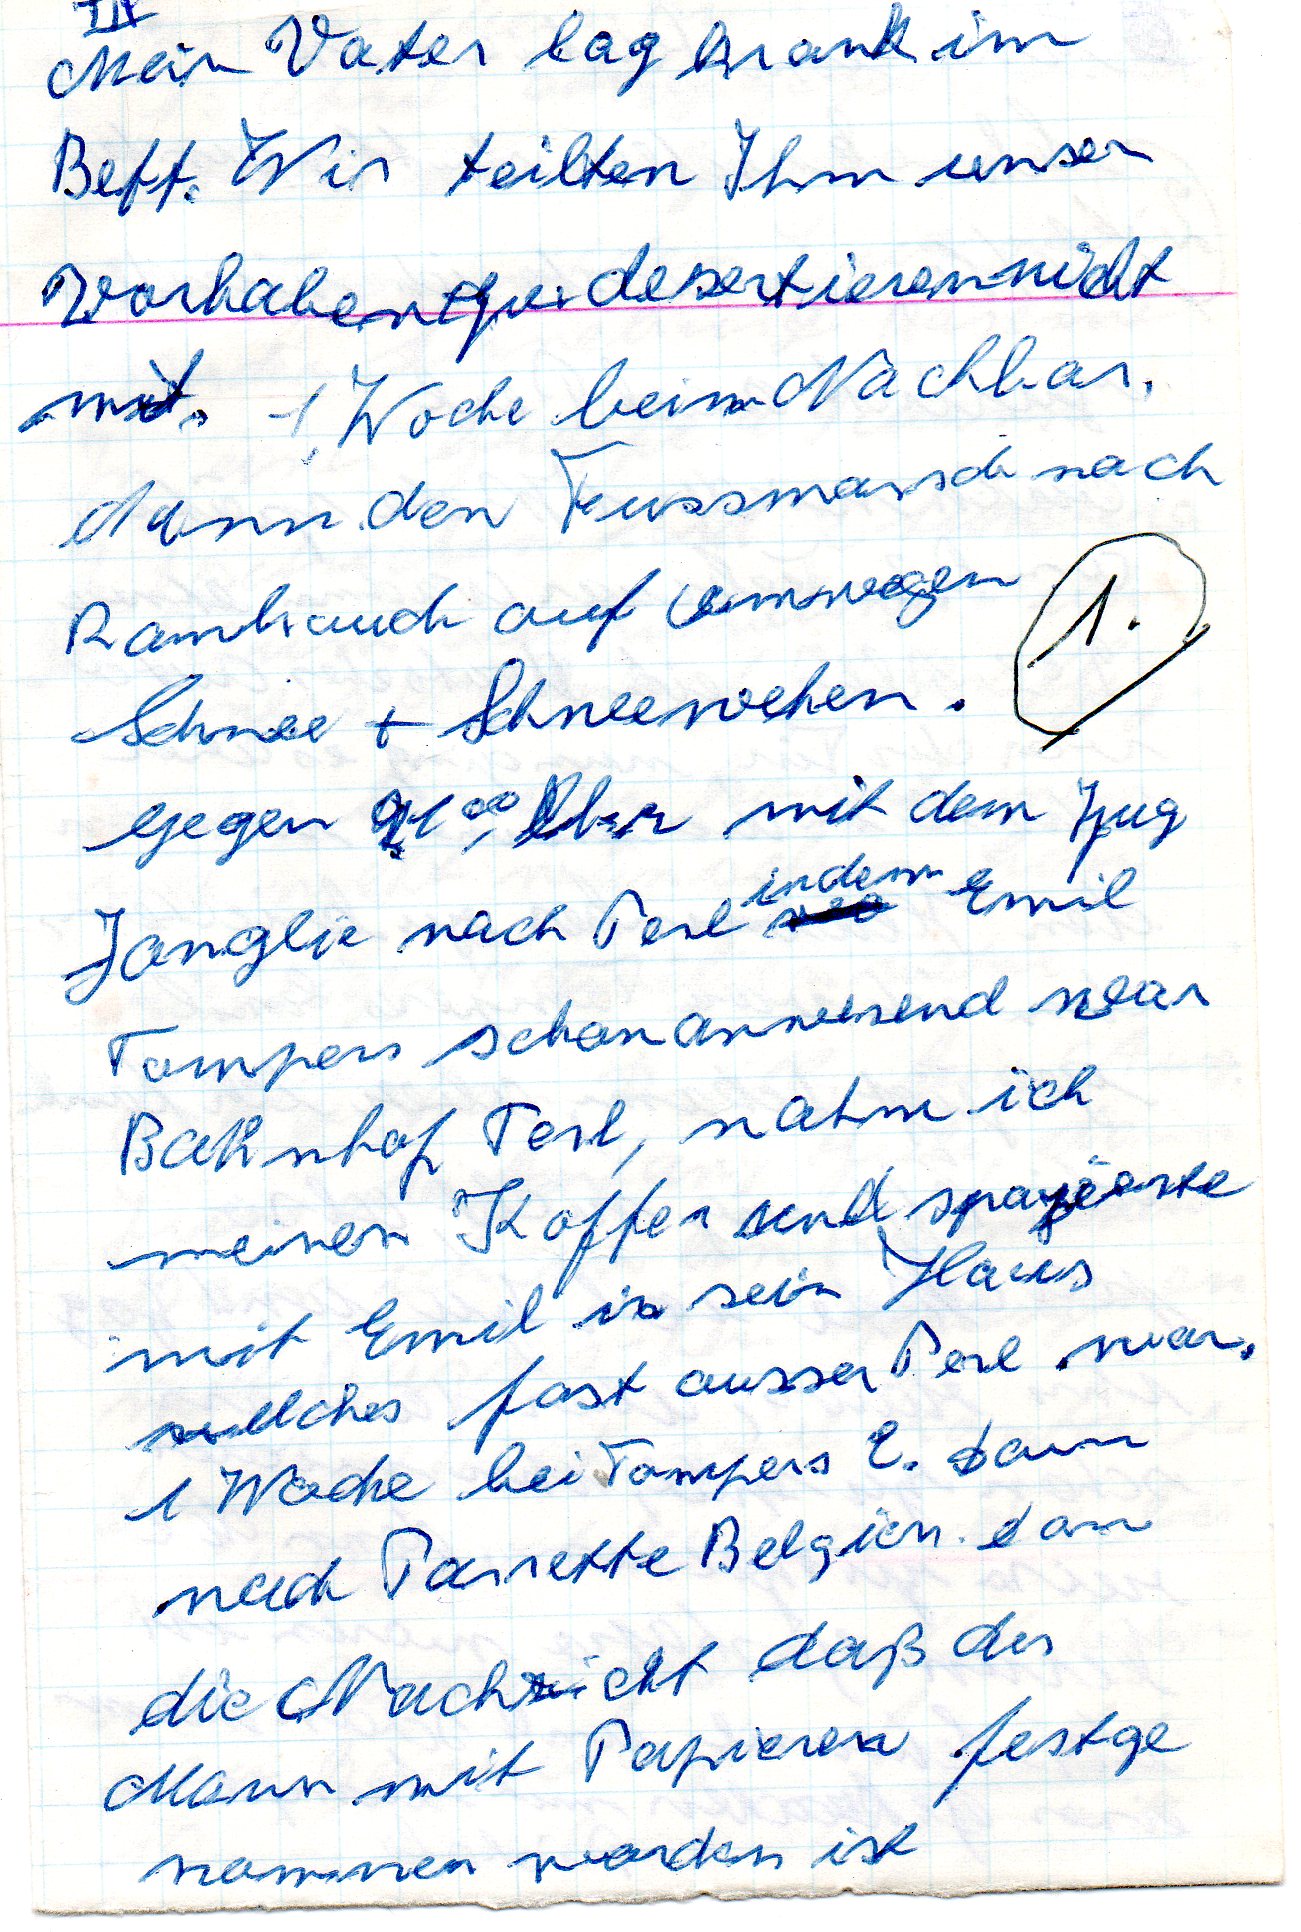 III
Mein Vater lag krank im
Bett. Wir teilten Ihm unser
Vorhaben zu desertieren nicht
mit. 1 Woche beim Nachbar,
dann den Fussmarsch nach
Rambruch auf umwegen
Schnee + Schneewehen.
1.
gegen 21⁰⁰ Uhr mit dem Zug
Janglie nach Perl indem Emil
Tompers schon anwesend war
Bahnhof Perl, nahm ich
meinen Koffer und spazierte
mit Emil in sein Haus
welches fast ausser Perl war.
1 Woche bei Tompers E. dann
nach Parrette Belgien. dan
die Nachricht daß der
Mann mit Papieren festge
nommen worden ist